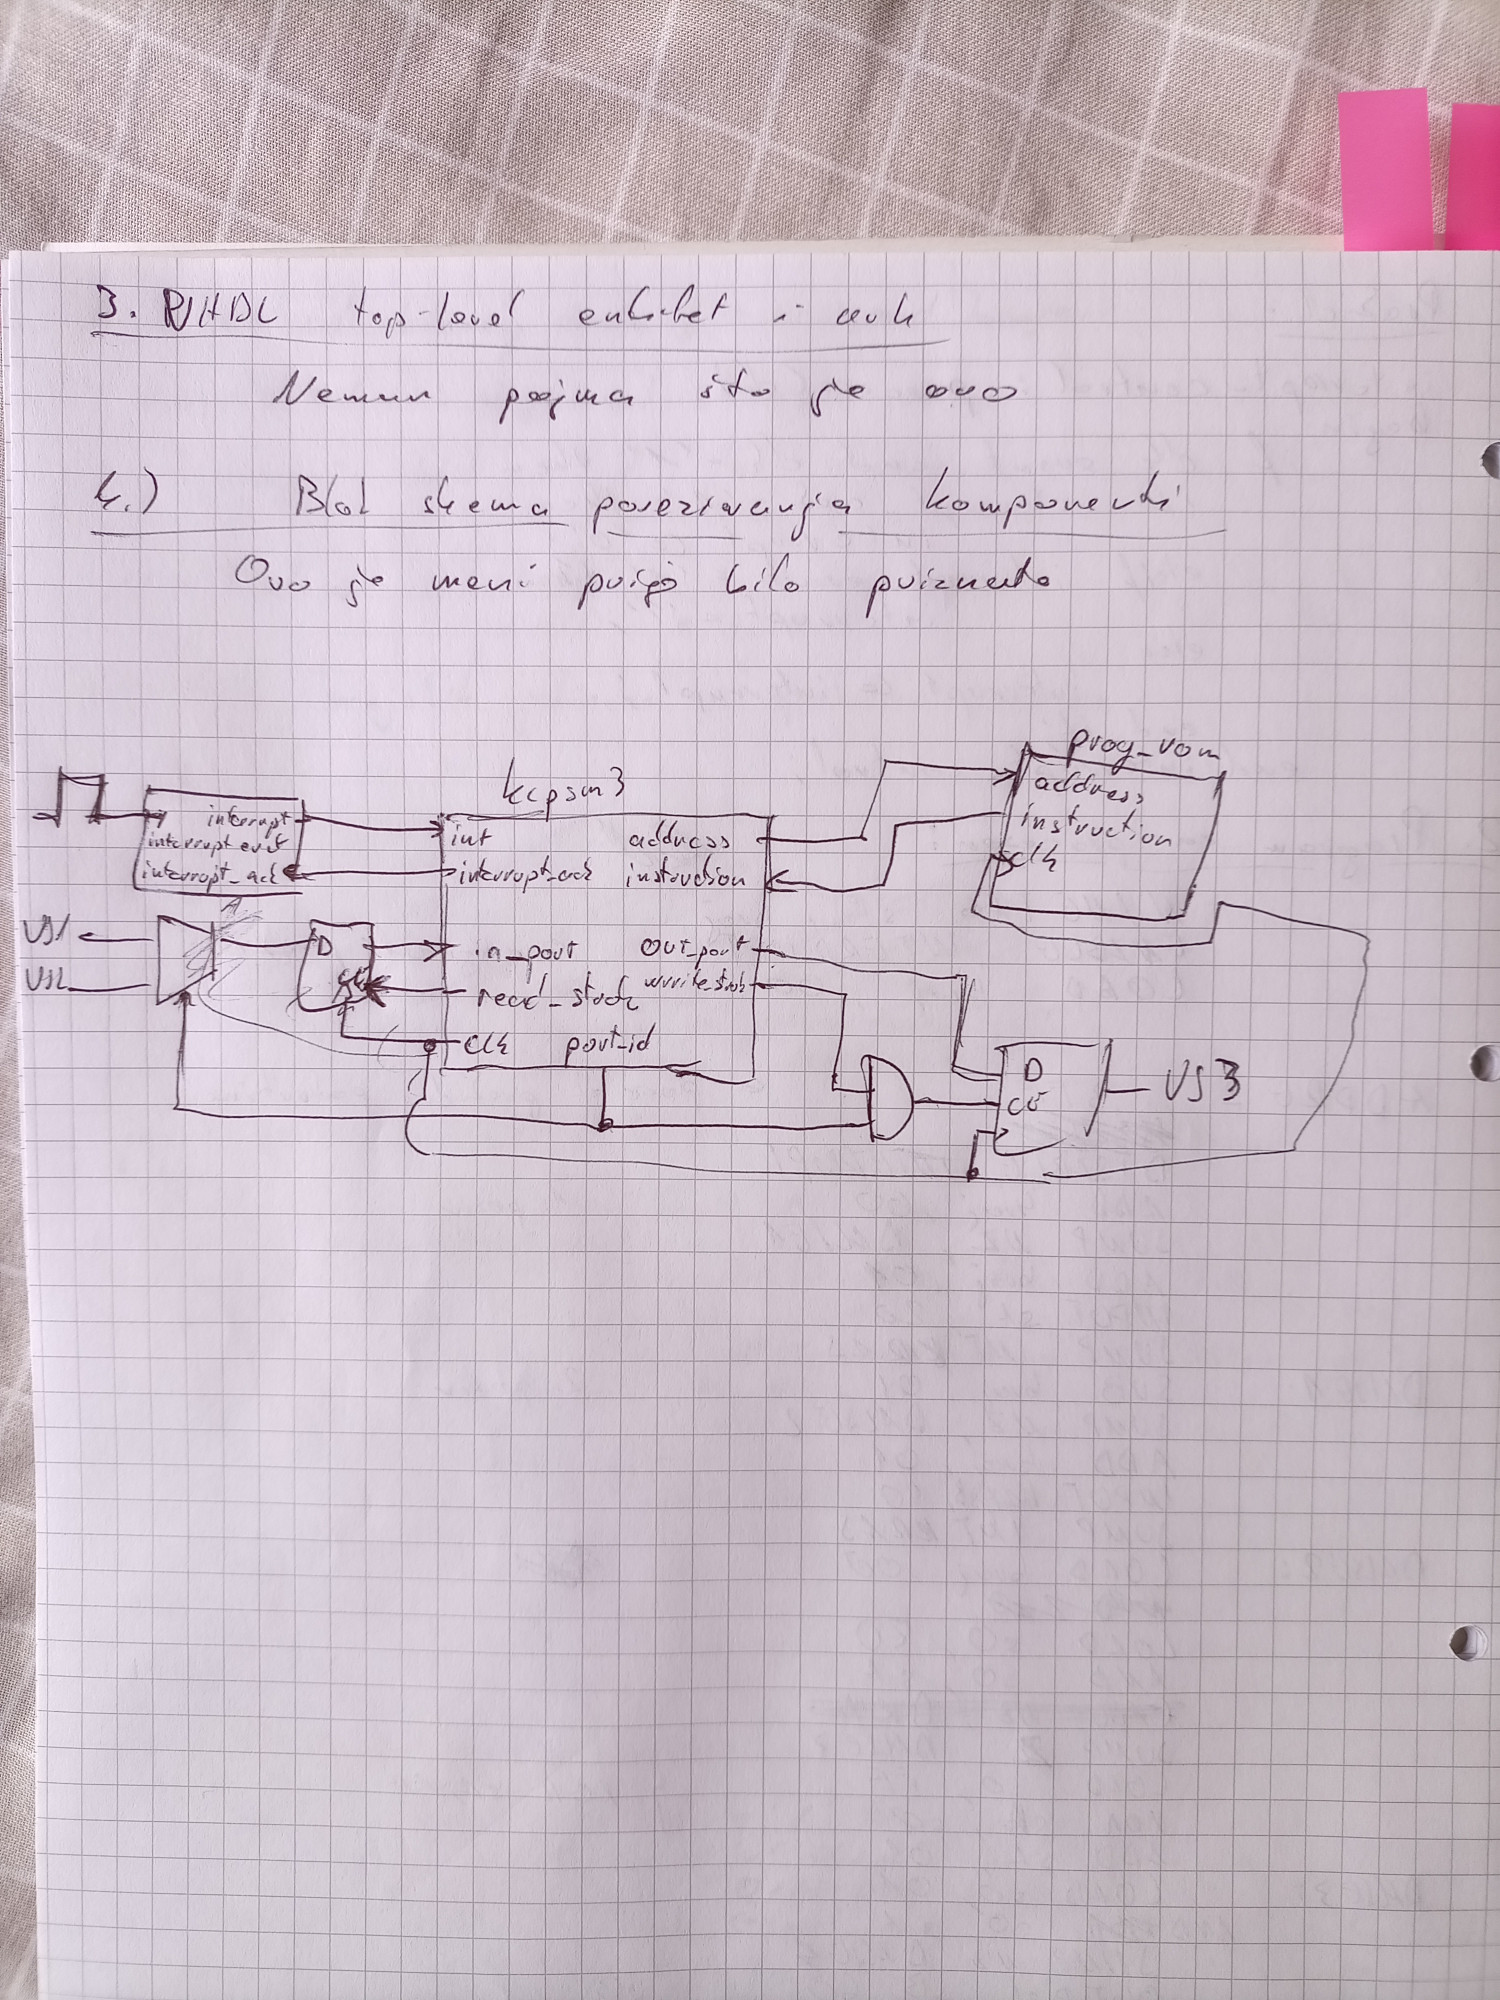 3. VHDL top-level entitet i arh
Nemam pojma što je ovo
4.) Blok shema povezivanja komponenti
Ovo je meni prije bilo priznato
kcpsm3
prog_rom
interrupt
interrupt event
interrupt_ack
int
interrupt_ack
address
instruction
address
instruction
clk
US1
US2
D
CE
in_port
read_strob
clk
port_id
out_port
write_strob
D
CE
US3